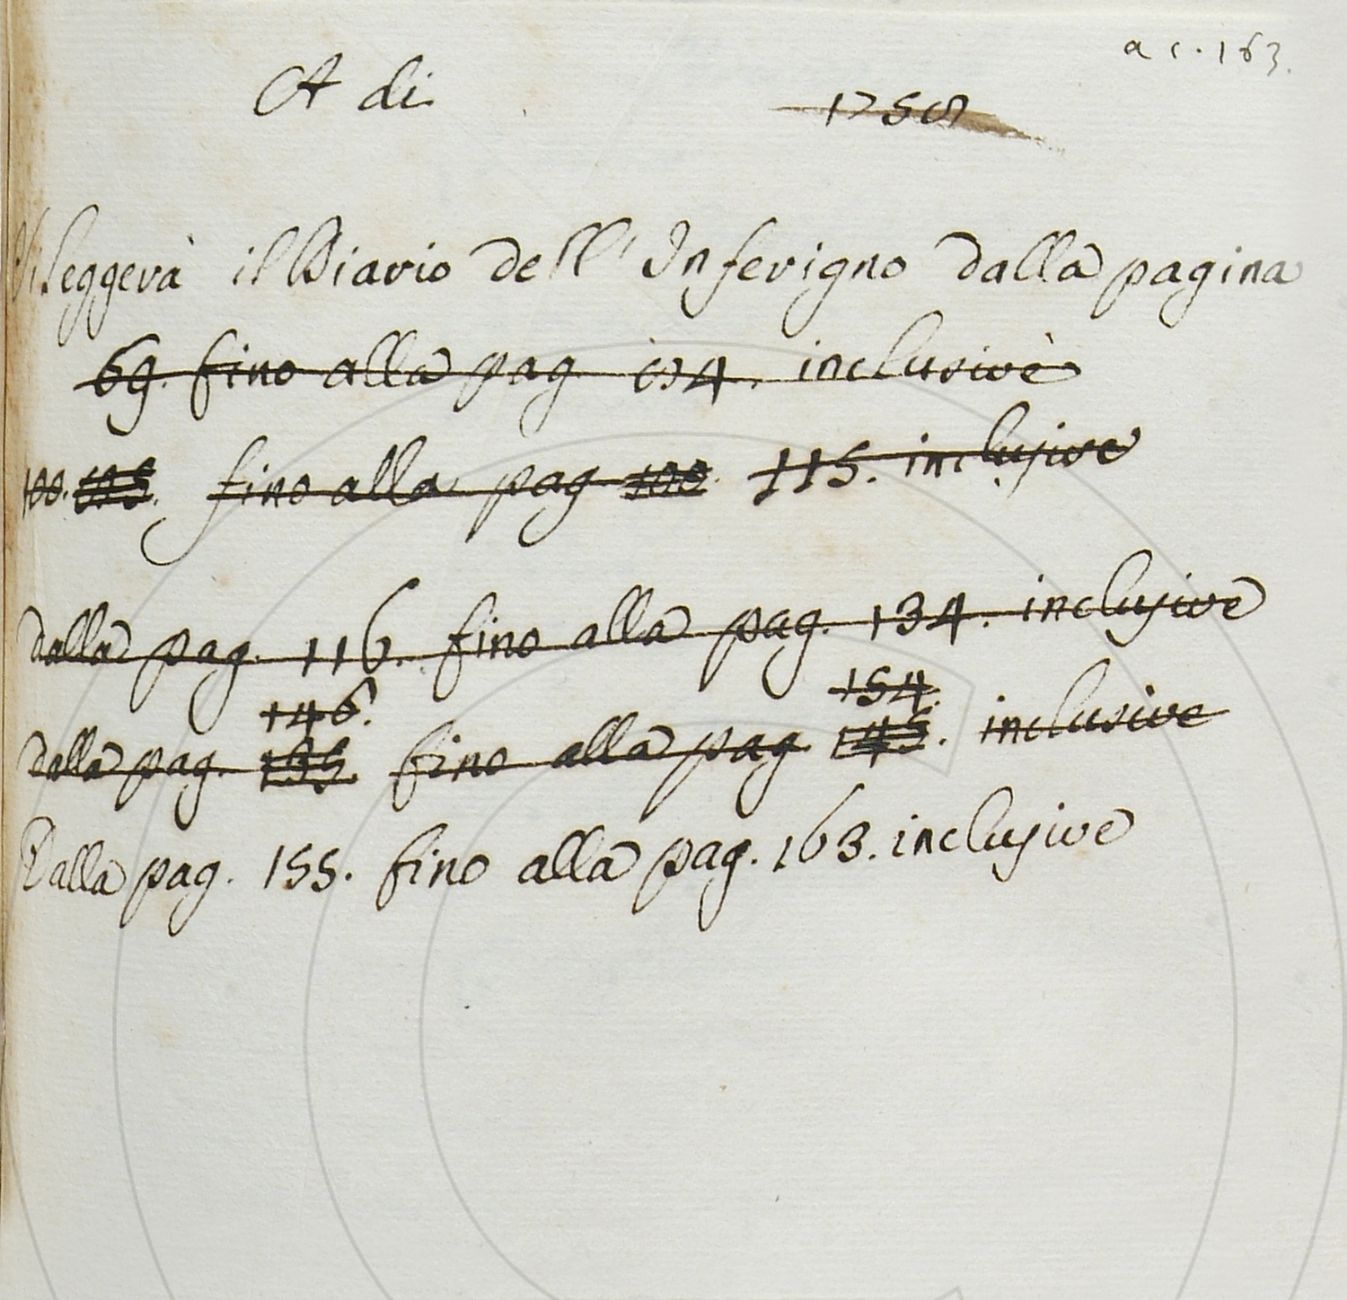 a c. 163.
A di 1758
Si leggerà il Diario dell' Inferigno dalla pagina
69. fino alla pag. 104. inclusive
100. 105. fino alla pag. 100 115. inclusive
dalla pag. 116. fino alla pag. 134. inclusive
146. 154.
dalla pag. 135 fino alla pag. 145. inclusive
Dalla pag. 155. fino alla pag. 163. inclusive